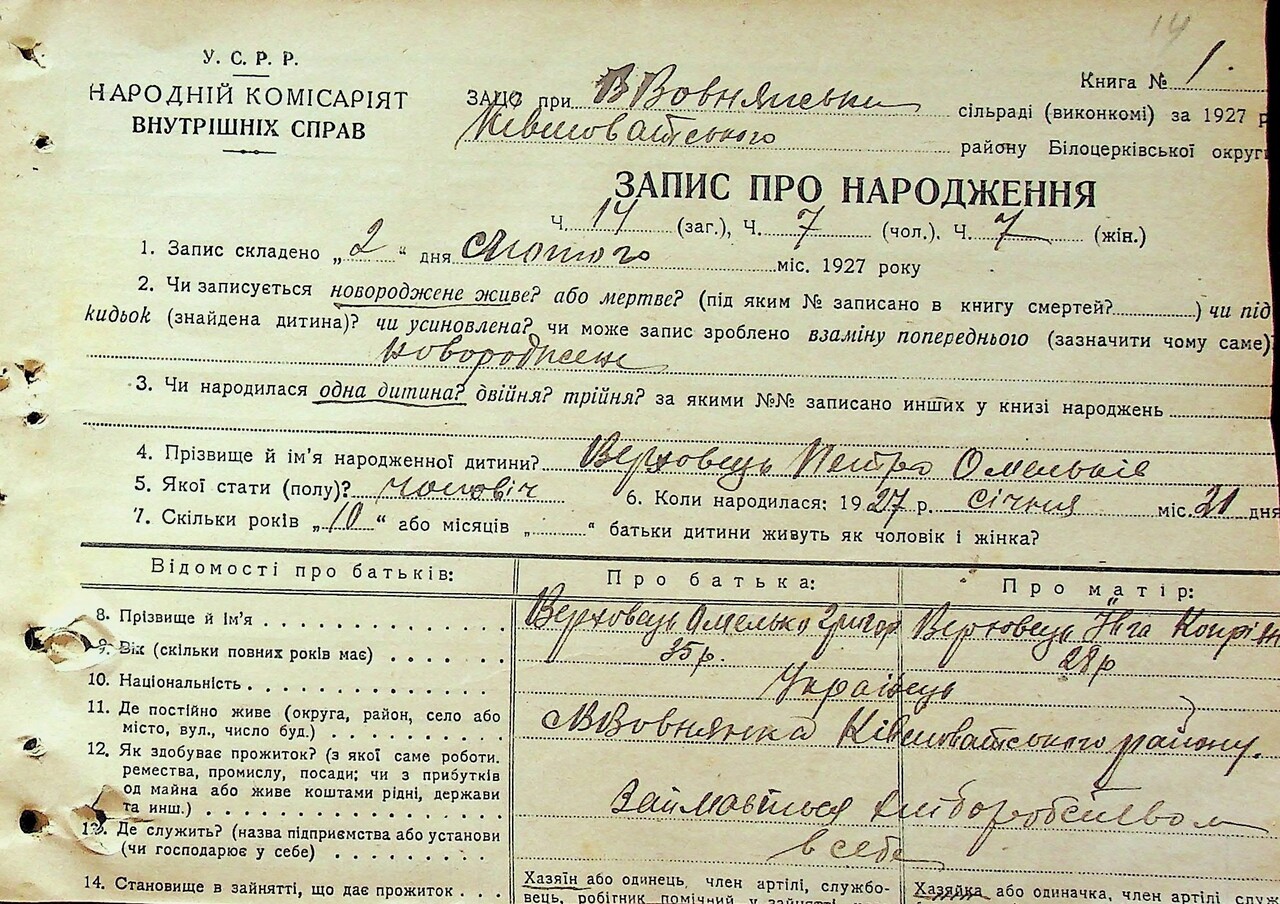 14
У. С. Р. Р.
НАРОДНІЙ КОМІСАРІЯТ
ВНУТРІШНІХ СПРАВ
Книга № 1.
ЗАЦС при В Вовнянські сільраді (виконкомі) за 1927 р
Ківшоватського району Білоцерківської округи
ЗАПИС ПРО НАРОДЖЕННЯ
Ч. 14 (заг.), Ч. 7 (чол.), Ч. 7 (жін.)
1. Запис складено „2“ дня Лютого міс. 1927 року
2. Чи записується новороджене живе? або мертве? (під яким № записано в книгу смертей?) чи під
кидьок (знайдена дитина)? чи усиновлена? чи може запис зроблено взаміну попереднього (зазначити чому саме)?
новороджене
3. Чи народилася одна дитина? двійня? трійня? за якими №№ записано инших у книзі народжень
4. Прізвище й ім'я народженної дитини? Верховець Петро Омельків
5. Якої стати (полу)? чоловіч 6. Коли народилася: 1927 р. січня міс. 21 дня
7. Скільки років „10“ або місяців „ “ батьки дитини живуть як чоловік і жінка?
Відомості про батьків: Про батька: Про матір:
8. Прізвище й Ім'я Верховець Омелько Григор Верховець Ївга
9. Вік (скільки повних років має) 35 р. 28 р
10. Національність Українець
11. Де постійно живе (округа, район, село або
місто, вул., число буд.) В Вовнянка Ківшоватського району.
12. Як здобуває прожиток? (з якої саме роботи.
ремества, промислу, посади; чи з прибутків
од майна або живе коштами рідні, держави
та инш.) Займається хліборобством
13. Де служить? (назва підприємства або установи
(чи господарює у себе) в себе
14. Становище в зайнятті, що дає прожиток Хазяїн або одинець, член артілі, службо- Хазяйка або одиначка, член артілі, служ
вець, робітник помічний у зайнятті